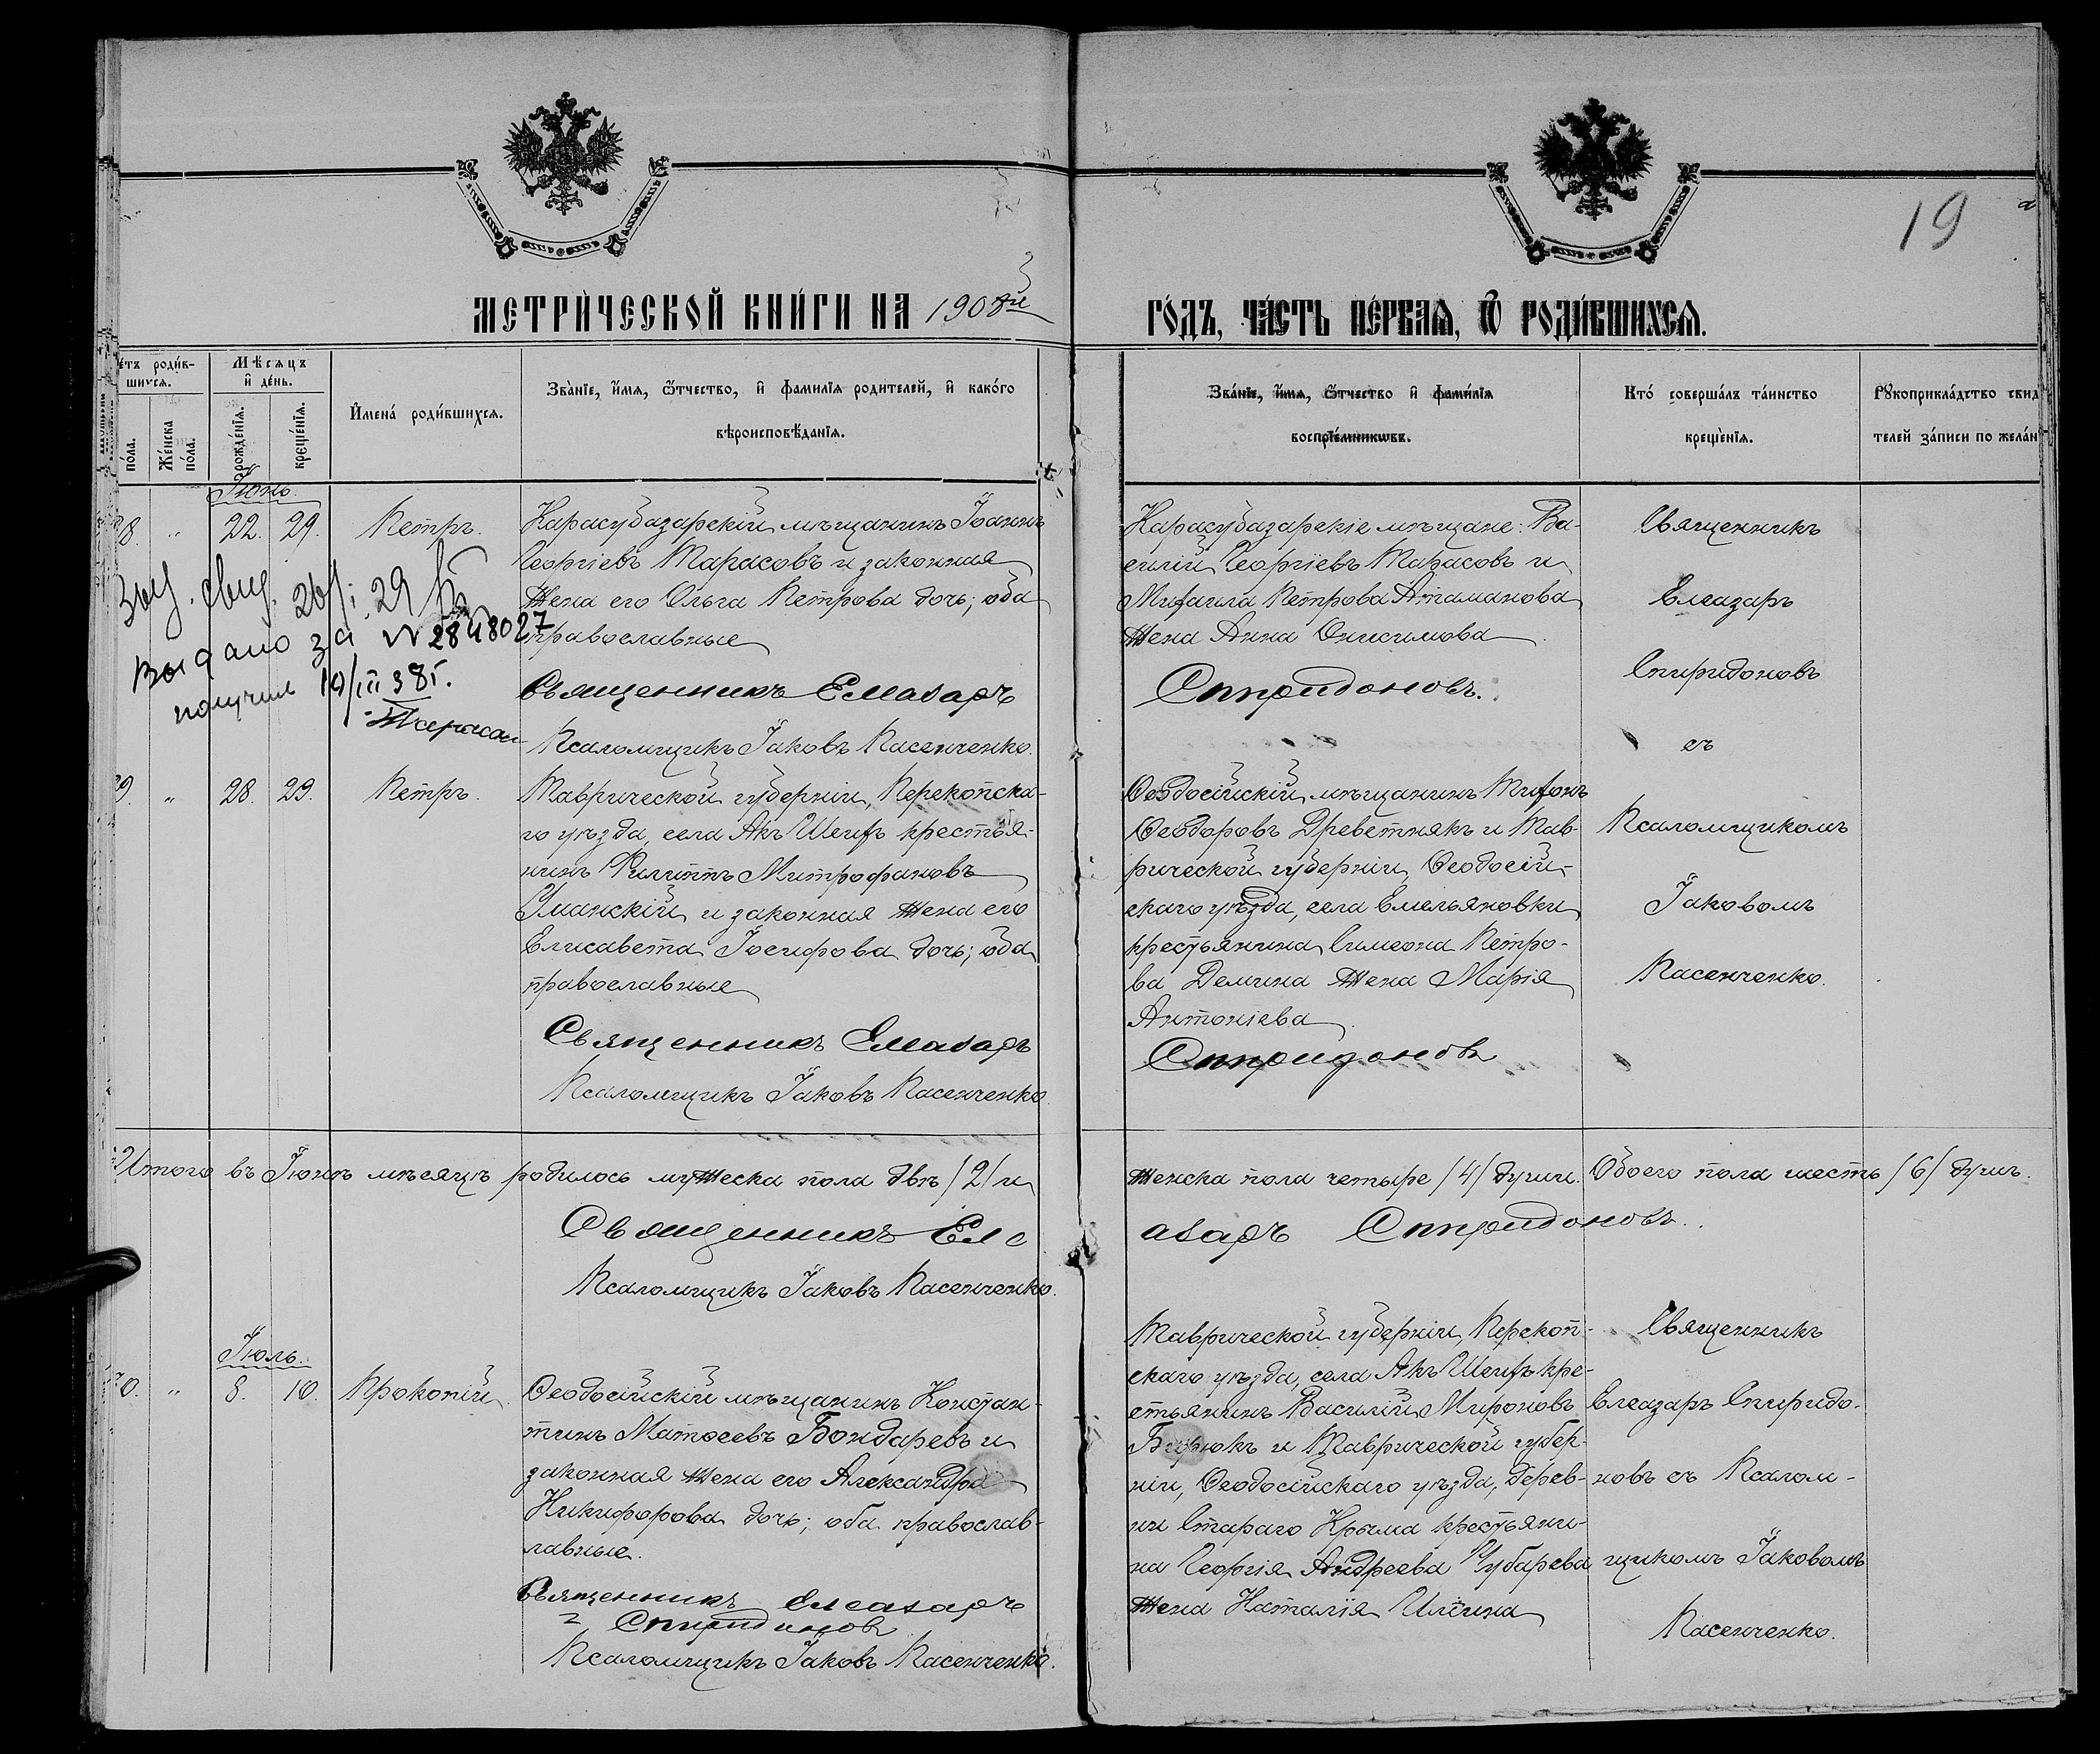 19
МЕТРИ́ЧЕСКОЙ КНИ́ГИ НА 1908й
ГО́ДЪ, ЧА́СТЬ ПЕ́РВАѦ, Ѿ РОДИ́ВШИХСѦ.
е́тъ роди́в-
шихсѧ.
по́ла.
Же́нска
по́ла.
Мѣ́сѧцъ
и҆ де́нь.
рожде́нїѧ.
креще́нїѧ.
И҆мена̀ роди́вшихсѧ.
Зва́нїе, и҆́мѧ, ѻ҆́тчество, и҆ фамилїѧ родителей, и҆ како́гѡ
вѣроисповѣ́данїѧ.
Зва́нїе, и҆́мѧ, ѻ҆́тчество и҆ фами́лїѧ
воспрїе́мникѡвъ.
Кто̀ соверша́лъ та́инство
креще́нїѧ.
Рꙋкоприкла́дство свид
телей за́писи по жела́н
Іюнь.
8. " 22. 29. Петръ.
Карасубазарскій мѣщанинъ Іоаннъ
Георгіевъ Тарасовъ и законная
жена его Ольга Петрова дочь; оба
православные
Священникъ Елеазаръ
Псаломщикъ Іаковъ Пасенченко.
Карасубазарскіе мѣщане: Ва-
силій Георгіевъ Тарасовъ и
Михаила Петрова Атаманова
жена Анна Онисимова
Спиридоновъ.
Священникъ
Елеазаръ
Спиридоновъ
съ
Псаломщикомъ
Іаковомъ
Пасенченко.
Выдано за № 2848027
получил 19/III 38 г.
9. " 28. 29. Петръ.
Таврической губерніи, Перекопска-
го уѣзда, села Акъ Шеихъ крестья-
нинъ Филиппъ Митрофановъ
Уманскій и законная жена его
Елисавета Іосифова дочь; оба
православные
Священникъ Елеазаръ
Псаломщикъ Іаковъ Пасенченко
Ѳеодосійскій мѣщанинъ Тихонъ
Ѳеодоровъ Древетнякъ и Тав-
рической губерніи, Ѳеодосій-
скаго уѣзда, села Емельяновки
крестьянина Симеона Петро-
ва Демина жена Марія
Антоніева
Спиридоновъ
Итого въ Іюнѣ мѣсяцѣ родилось мужеска пола двѣ /2/ и женска пола четыре /4/ души. Обоего пола шесть /6/ душъ.
Священникъ Еле азаръ Спиридоновъ.
Псаломщикъ Іаковъ Пасенченко.
Іюль.
0. " 8. 10. Прокопій
Ѳеодосійскій мѣщанинъ Констан-
тинъ Матѳеевъ Бондаревъ и
законная жена его Александра
Никифорова дочь; оба православ-
лавные.
Священникъ Елеазаръ
Спиридоновъ
Псаломщикъ Іаковъ Пасенченко.
Таврической губерніи, Перекоп-
скаго уѣзда, села Акъ Шеихъ кре-
стьянинъ Василій Мироновъ
Бирюкъ и Таврической губер-
ніи, Ѳеодосійскаго уѣзда, дерев-
ни Стараго Крыма крестьяни-
на Георгія Андреева Губарева
жена Наталія Ильина
Священникъ
Елеазаръ Спиридо-
новъ съ Псалом-
щикомъ Іаковомъ
Пасенченко.